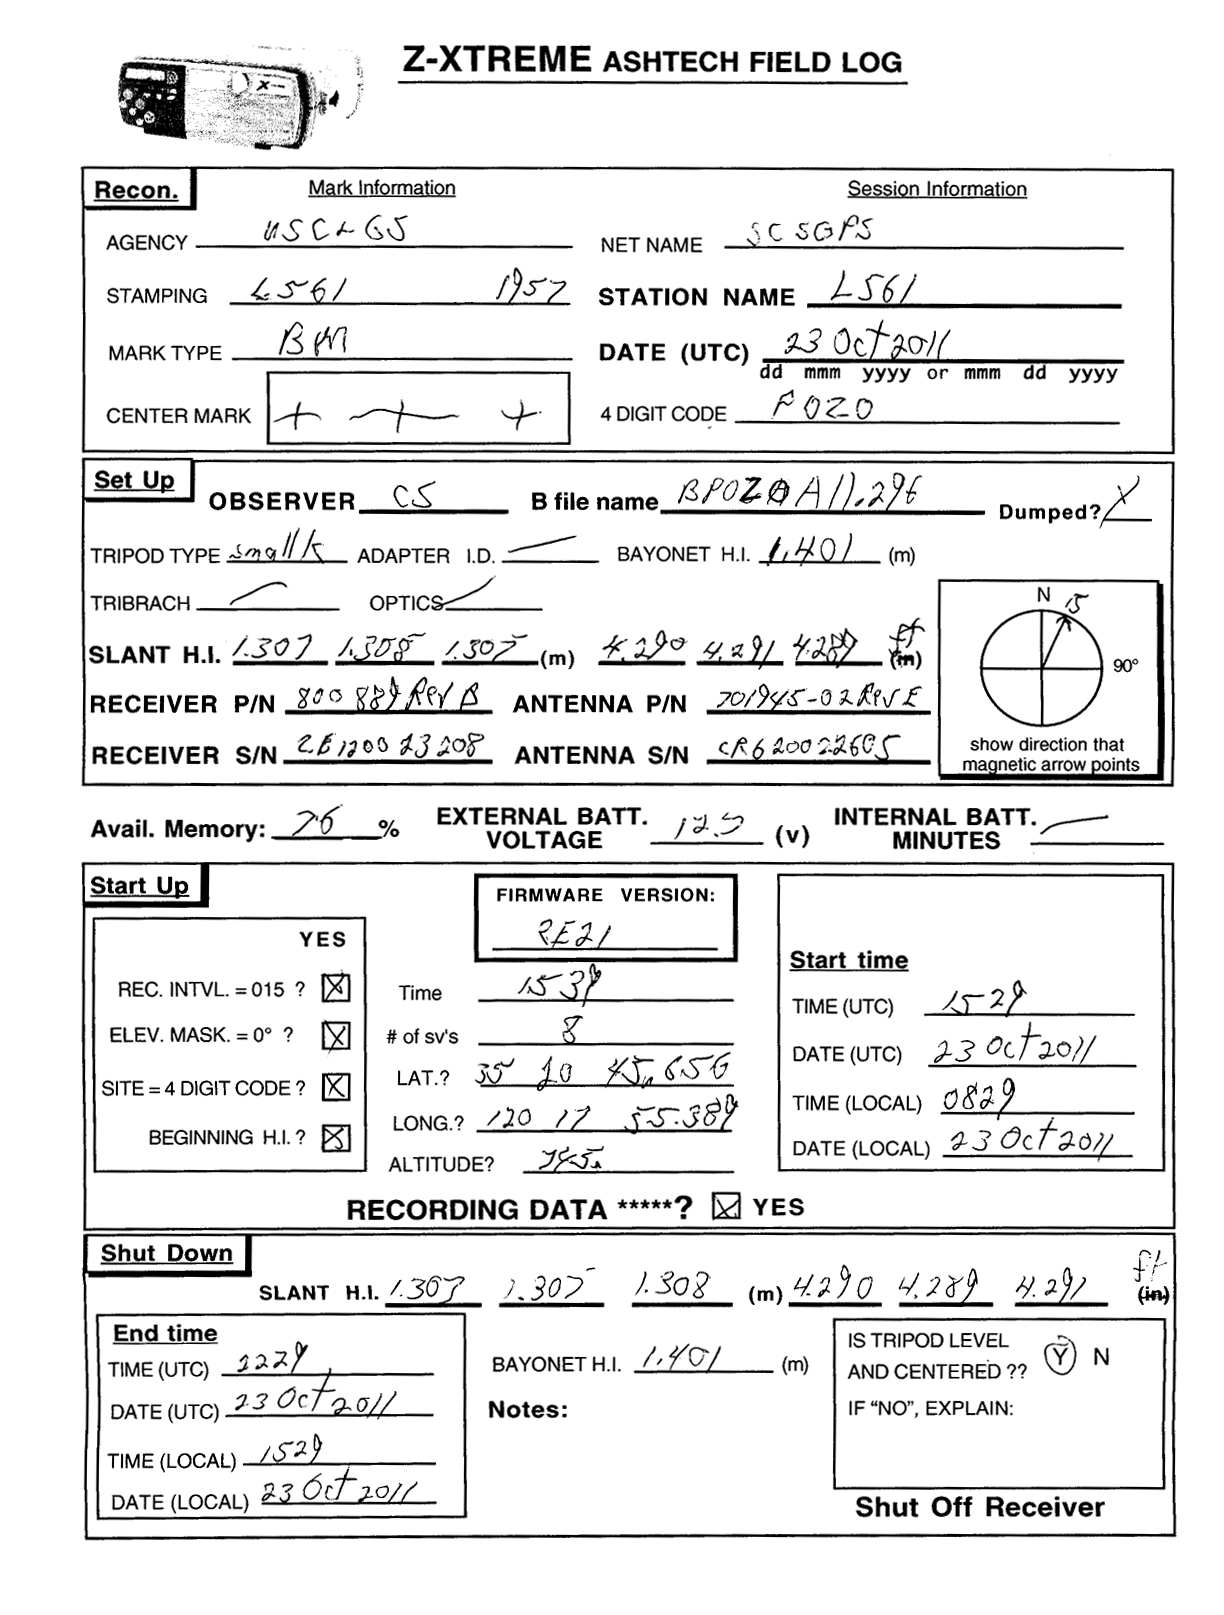 Z-XTREME ASHTECH FIELD LOG
Recon. Mark Information Session Information
AGENCY USC+GS NET NAME SCSGPS
STAMPING L561 1957 STATION NAME L561
MARK TYPE BM DATE (UTC) 23 Oct 2011
dd mmm yyyy or mmm dd yyyy
CENTER MARK 4 DIGIT CODE POZO
Set Up OBSERVER CS B file name BPOZOA11.296 Dumped? X
TRIPOD TYPE small k ADAPTER I.D. — BAYONET H.I. 1.401 (m)
TRIBRACH — OPTICS —
N 15
SLANT H.I. 1.307 1.308 1.307 (m) 4.290 4.291 4.289 ft (in)
90°
RECEIVER P/N 800 889 Rev B ANTENNA P/N 701945-02 Rev E
RECEIVER S/N ZE1200 23208 ANTENNA S/N CR620022605
show direction that
magnetic arrow points
Avail. Memory: 76 % EXTERNAL BATT. VOLTAGE 12.5 (v) INTERNAL BATT. MINUTES —
Start Up
FIRMWARE VERSION:
ZE21
YES
Start time
REC. INTVL. = 015 ? X Time 1539
TIME (UTC) 1529
ELEV. MASK. = 0° ? X # of sv's 8
DATE (UTC) 23 Oct 2011
SITE = 4 DIGIT CODE ? X LAT.? 35 20 45.656
TIME (LOCAL) 0829
BEGINNING H.I. ? X LONG.? 120 17 55.389
DATE (LOCAL) 23 Oct 2011
ALTITUDE? 745.
RECORDING DATA *****? X YES
Shut Down
SLANT H.I. 1.307 1.307 1.308 (m) 4.290 4.289 4.291 ft (in)
End time
TIME (UTC) 2229 BAYONET H.I. 1.401 (m)
IS TRIPOD LEVEL
AND CENTERED ?? Y N
DATE (UTC) 23 Oct 2011 Notes:
IF “NO”, EXPLAIN:
TIME (LOCAL) 1529
DATE (LOCAL) 23 Oct 2011
Shut Off Receiver